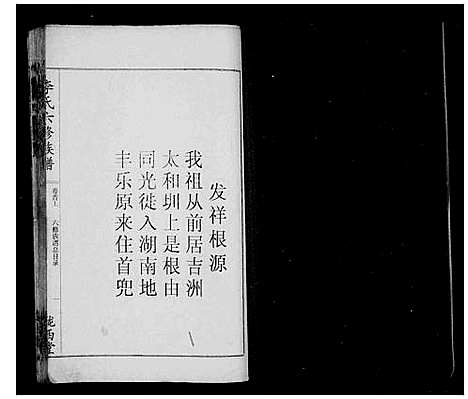 发祥根源
我祖从前居吉洲
太和圳上是根由
同光徙入湖南地
丰乐原来住首兜
李氏六修族谱
卷首上
六修族谱总目录
陇西堂